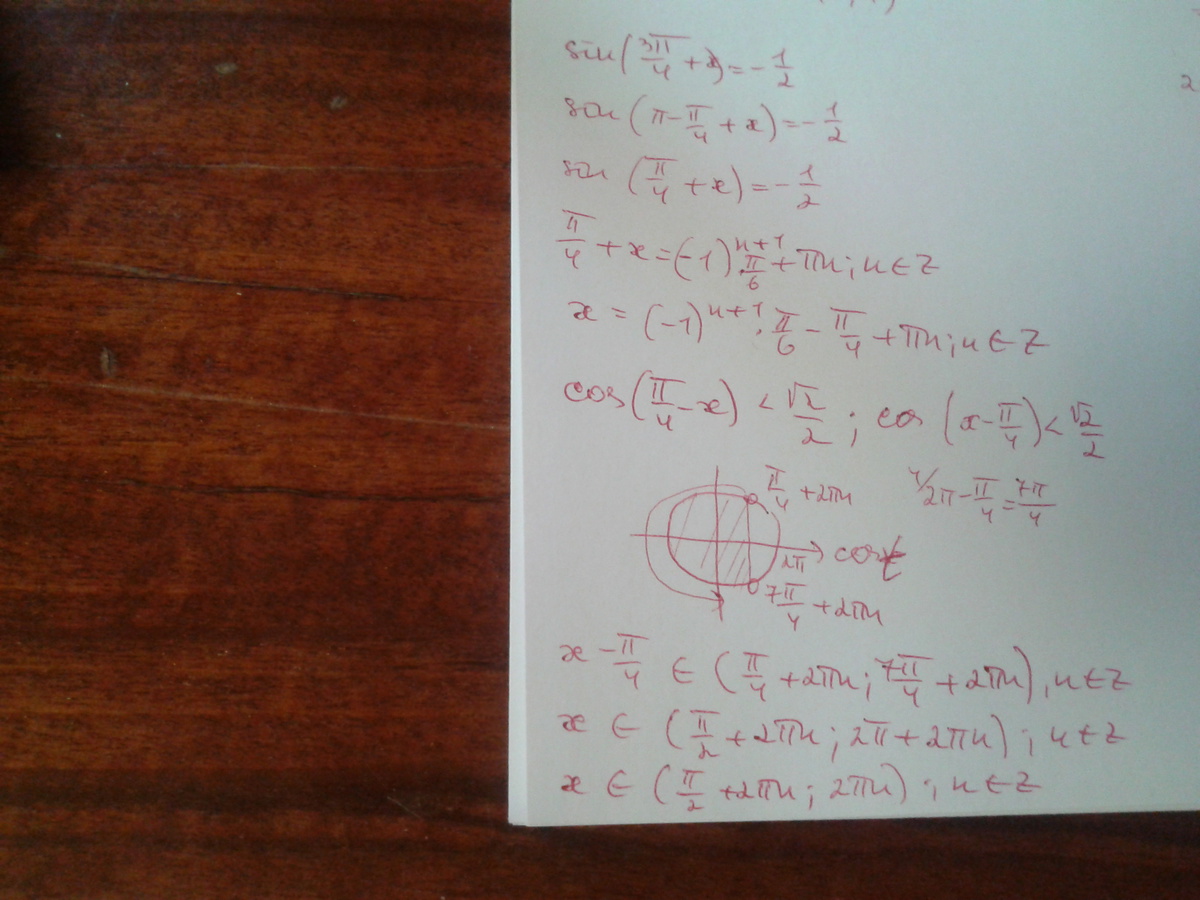 sin(3π/4 + x) = -1/2
sin(π - π/4 + x) = -1/2
sin(π/4 + x) = -1/2
π/4 + x = (-1)^{n+1} · π/6 + πn; n ∈ Z
x = (-1)^{n+1} · π/6 - π/4 + πn; n ∈ Z
cos(π/4 - x) < √2/2 ; cos(x - π/4) < √2/2
π/4 + 2πn
2π - π/4 = 7π/4
2π
cos t
7π/4 + 2πn
x - π/4 ∈ (π/4 + 2πn; 7π/4 + 2πn), n ∈ Z
x ∈ (π/2 + 2πn; 2π + 2πn); n ∈ Z
x ∈ (π/2 + 2πn; 2πn); n ∈ Z
2